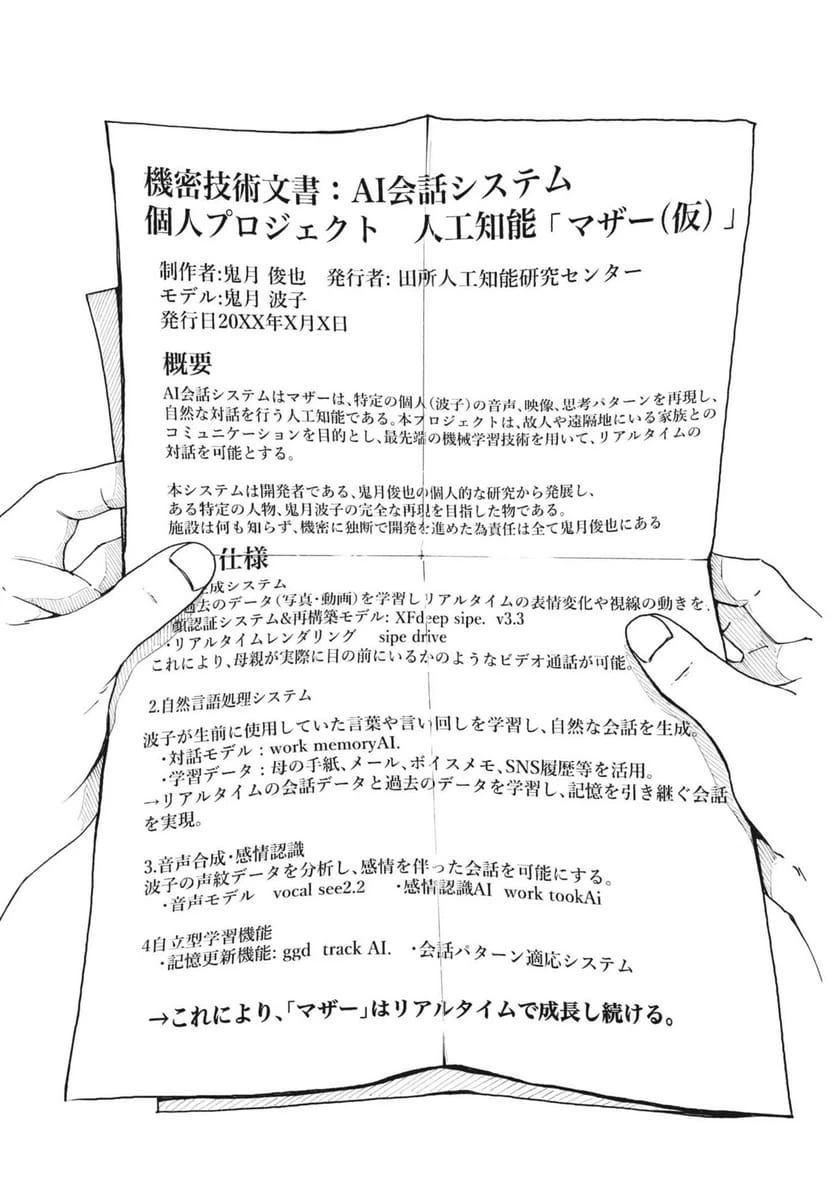 機密技術文書：AI会話システム
個人プロジェクト　人工知能「マザー（仮）」
制作者:鬼月 俊也　発行者: 田所人工知能研究センター
モデル:鬼月 波子
発行日20XX年X月X日
概要
AI会話システムはマザーは、特定の個人（波子）の音声、映像、思考パターンを再現し、
自然な対話を行う人工知能である。本プロジェクトは、故人や遠隔地にいる家族との
コミュニケーションを目的とし、最先端の機械学習技術を用いて、リアルタイムの
対話を可能とする。
本システムは開発者である、鬼月俊也の個人的な研究から発展し、
ある特定の人物、鬼月波子の完全な再現を目指した物である。
施設は何も知らず、機密に独断で開発を進めた為責任は全て鬼月俊也にある
仕様
生成システム
過去のデータ（写真・動画）を学習しリアルタイムの表情変化や視線の動きを、
顔認証システム&再構築モデル: XFdeep sipe. v3.3
・リアルタイムレンダリング　sipe drive
これにより、母親が実際に目の前にいるかのようなビデオ通話が可能。
2.自然言語処理システム
波子が生前に使用していた言葉や言い回しを学習し、自然な会話を生成。
・対話モデル : work memoryAI.
・学習データ : 母の手紙、メール、ボイスメモ、SNS履歴等を活用。
→リアルタイムの会話データと過去のデータを学習し、記憶を引き継ぐ会話
を実現。
3.音声合成・感情認識
波子の声紋データを分析し、感情を伴った会話を可能にする。
・音声モデル　vocal see2.2　・感情認識AI work tookAi
4自立型学習機能
・記憶更新機能: ggd track AI.　・会話パターン適応システム
→これにより、「マザー」はリアルタイムで成長し続ける。